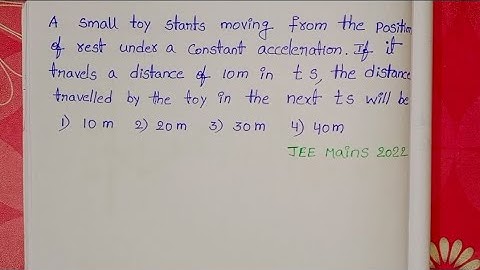 A small toy starts moving from the position
of rest under a constant acceleration. If it
travels a distance of 10m in t s, the distance
travelled by the toy in the next t s will be
1) 10 m 2) 20 m 3) 30 m 4) 40 m
JEE Mains 2022